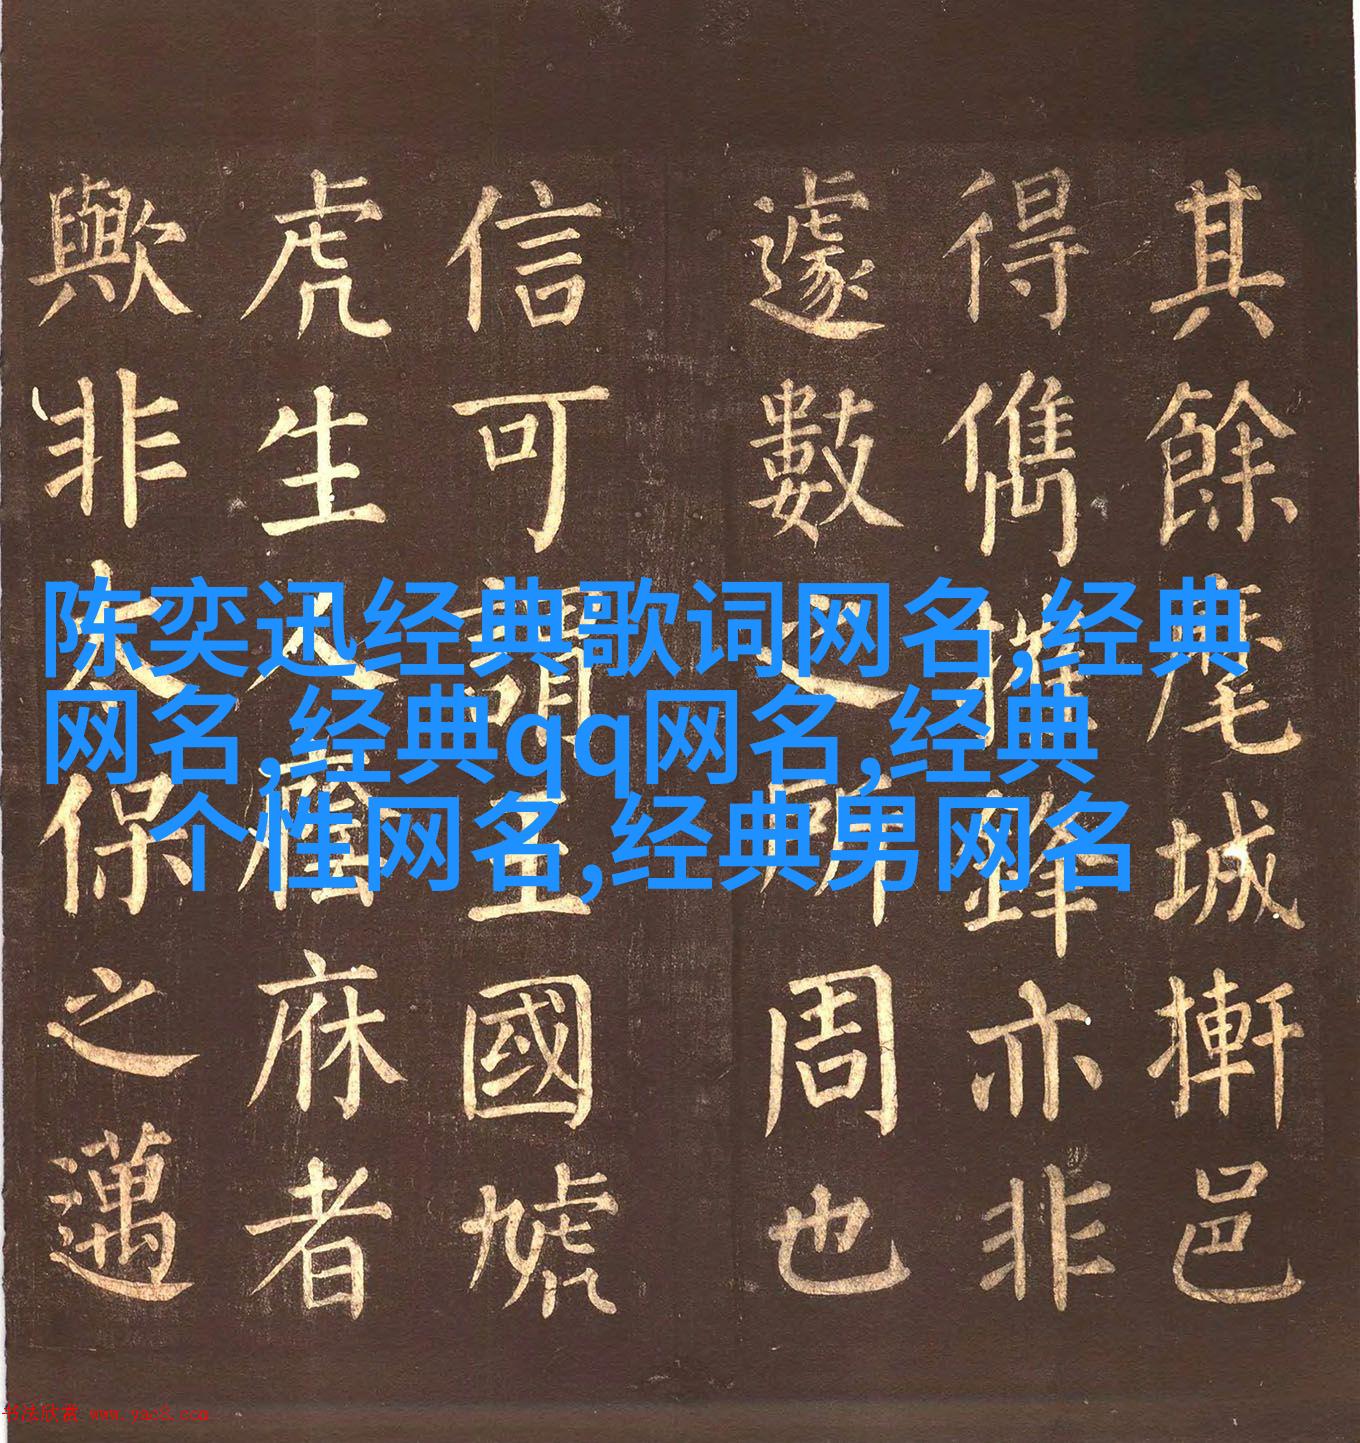 陈奕迅经典歌词网名,经典
网名,经典qq网名,经典
个性网名,经典男网名
其餘麾城摲邑
得儁摧鋒亦非
遽數之所周也
信可謂王國虓
虎生人癊庥者
歟非太保之邁
书法欣赏 www.yac8.com